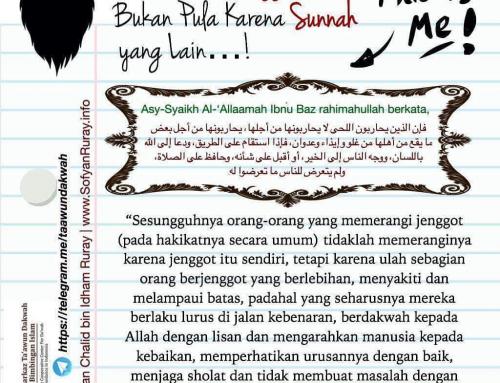 Bukan Pula Karena Sunnah
yang Lain...!
Me!
Asy-Syaikh Al-'Allaamah Ibnu Baz rahimahullah berkata,
فإن الذين يحاربون اللحى لا يحاربونها من أجلها، يحاربونها من أجل بعض
ما يقع من أهلها من غلو وإيذاء وعدوان، فإذا استقام على الطريق، ودعا إلى الله
باللسان، ووجه الناس إلى الخير، أو أقبل على شأنه، وحافظ على الصلاة،
ولم يتعرض للناس ما تعرضوا له
“Sesungguhnya orang-orang yang memerangi jenggot
(pada hakikatnya secara umum) tidaklah memeranginya
karena jenggot itu sendiri, tetapi karena ulah sebagian
orang berjenggot yang berlebihan, menyakiti dan
melampaui batas, padahal yang seharusnya mereka
berlaku lurus di jalan kebenaran, berdakwah kepada
Allah dengan lisan dan mengarahkan manusia kepada
kebaikan, memperhatikan urusannya dengan baik,
menjaga sholat dan tidak membuat masalah dengan
https://telegram.me/taawundakwah
an Chalid bin Idham Ruray | www.SofyanRuray.info
arkaz Ta'awun Dakwah
Bimbingan Islam